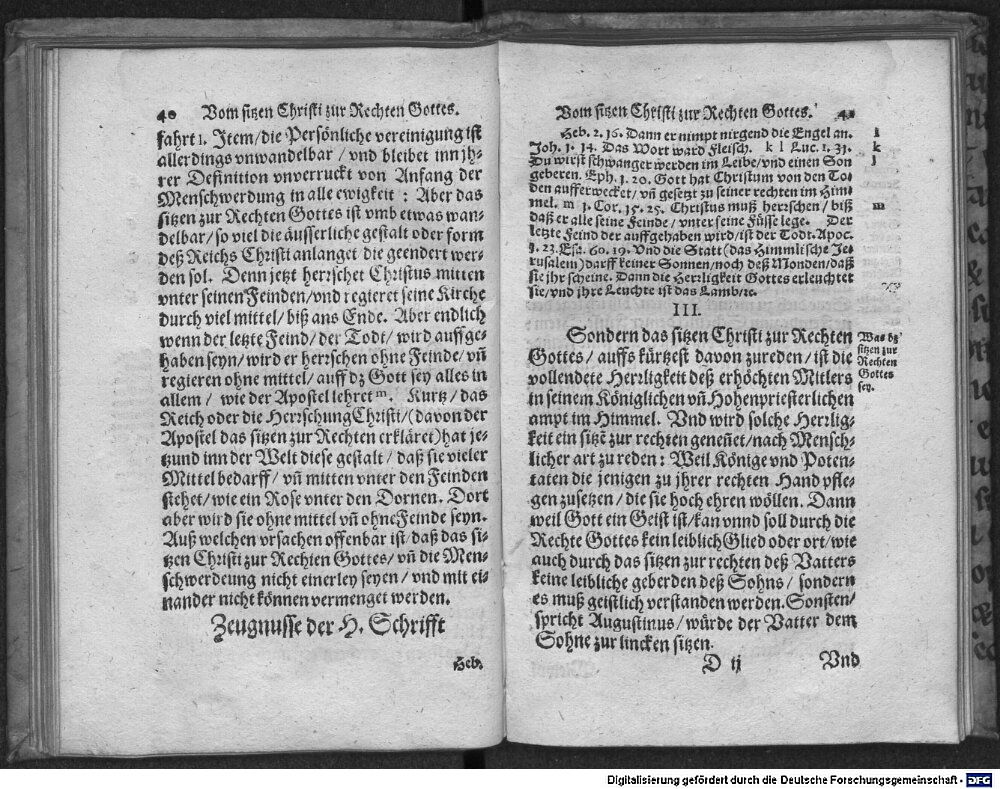 40 Vom sitzen Christi zur Rechten Gottes.
fahrt l. Item/die Persönliche vereinigung ist
allerdings vnwandelbar / vnd bleibet inn jh-
rer Definition vnverruckt von Anfang der
Menschwerdung in alle ewigkeit : Aber das
sitzen zur Rechten Gottes ist vmb etwas wan-
delbar/so viel die äusserliche gestalt oder form
deß Reichs Christi anlanget die geendert wer-
den sol. Denn jetzt herrschet Christus mitten
vnter seinen Feinden/vnd regieret seine Kirche
durch viel mittel/ biß ans Ende. Aber endlich
wenn der letzte Feind/ der Todt/ wird auffge-
haben seyn/wird er herrschen ohne Feinde/vñ
regieren ohne mittel/auff dz Gott sey alles in
allem / wie der Apostel lehret m. Kurtz/das
Reich oder die Herrschung Christi/(davon der
Apostel das sitzen zur Rechten erkläret)hat je-
tzund inn der Welt diese gestalt / daß sie vieler
Mittel bedarff/ vñ mitten vnter den Feinden
stehet/wie ein Rose vnter den Dornen. Dort
aber wird sie ohne mittel vñ ohne Feinde seyn.
Auß welchen vrsachen offenbar ist/daß das si-
tzen Christi zur Rechten Gottes/ vñ die Men-
schwerdeung nicht einerley seyen/ vnd mit ei-
nander nicht können vermenget werden.
Zeugnusse der H. Schrifft
Heb.
Vom sitzen Christi zur Rechten Gottes. 41
Heb. 2. 16. Dann er nimpt nirgend die Engel an. i
Joh. 1. 14. Das Wort ward Fleisch. k l Luc. 1. 31. k
Du wirst schwanger werden im Leibe/vnd einen Son l
geberen. Eph. 1. 20. Gott hat Christum von den To-
den aufferwecket/ vñ gesetzt zu seiner rechten im Him-
mel. m 1. Cor. 15. 25. Christus muß herrschen / biß m
daß er alle seine Feinde / vnter seine Füsse lege. Der
letzte Feind der auffgehaben wird/ist der Todt. Apoc.
1. 23. Esa. 60. 19. Vnd die Statt (das Himmlische Je-
rusalem) darff keiner Sonnen/noch deß Monden/daß
sie jhr scheine. Dann die Herrligkeit Gottes erleuchtet
sie/vnd jhre Leuchte ist das Lamb/ꝛc.
III.
Sondern das sitzen Christi zur Rechten
Gottes/ auffs kürtzest davon zureden/ ist die
vollendete Herrligkeit deß erhöchten Mitlers
in seinem Königlichen vñ Hohenpriesterlichen
ampt im Himmel. Vnd wird solche Herrlig-
keit ein sitzẽ zur rechten geneñet/nach Mensch-
licher art zu reden: Weil Könige vnd Poten-
taten die jenigen zu jhrer rechten Hand pfle-
gen zusetzen/ die sie hoch ehren wöllen. Dann
weil Gott ein Geist ist/kan vnnd soll durch die
Rechte Gottes kein leiblich Glied oder ort/wie
auch durch das sitzen zur rechten deß Vatters
keine leibliche geberden deß Sohns/ sondern
es muß geistlich verstanden werden. Sonsten/
spricht Augustinus/ würde der Vatter dem
Sohne zur lincken sitzen.
Was dz
sitzen zur
Rechten
Gottes
sey.
D ij Vnd
Digitalisierung gefördert durch die Deutsche Forschungsgemeinschaft - DFG